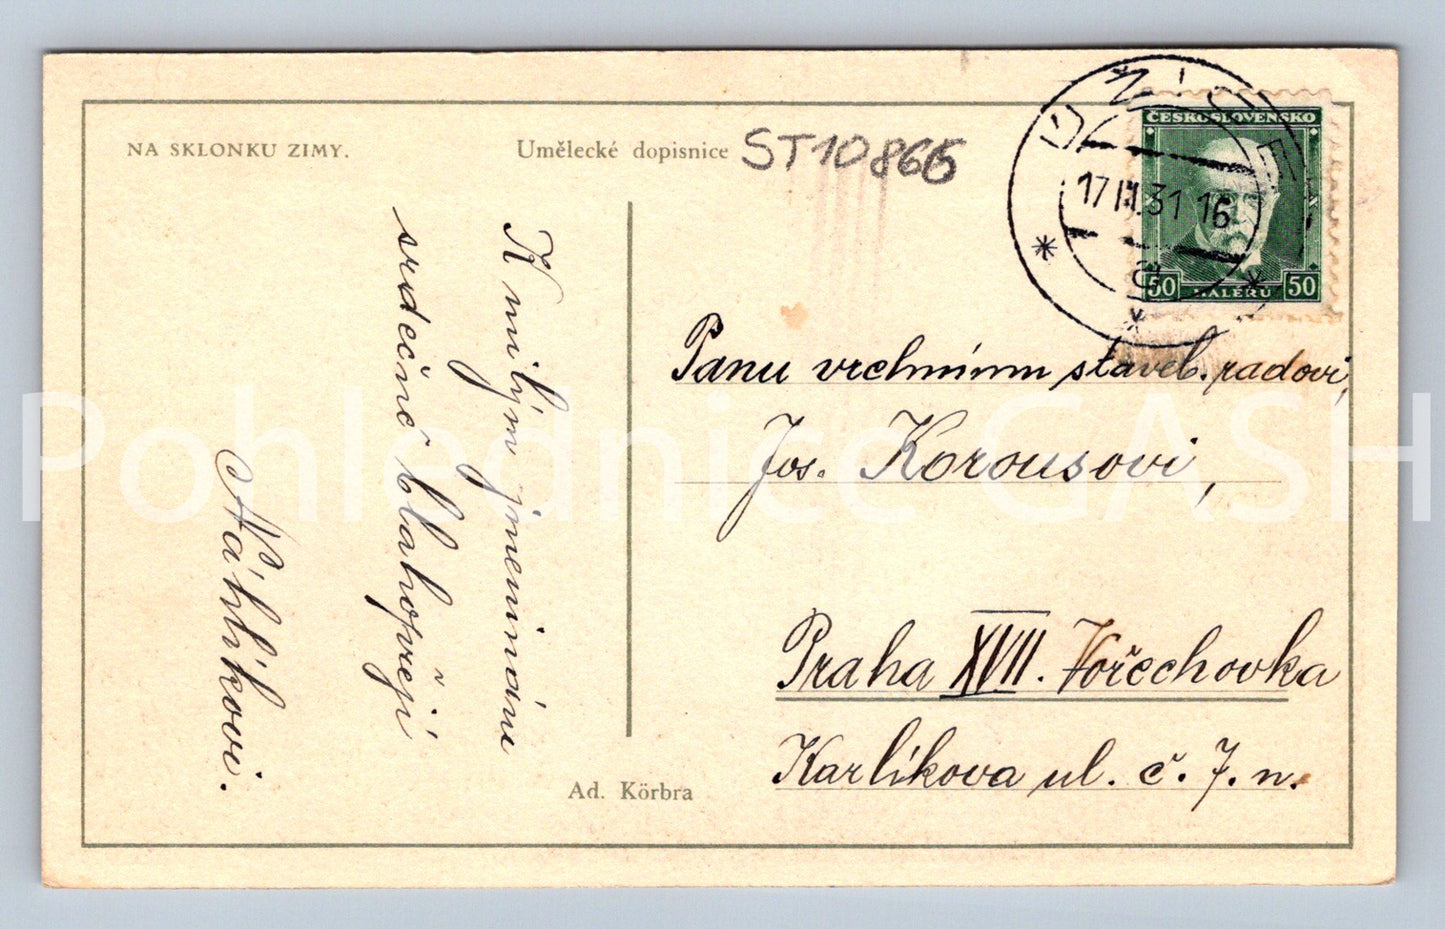 NA SKLONKU ZIMY.
Umělecké dopisnice
ST10866
ČESKOSLOVENSKO
50 HALÉŘŮ 50
17 III.31 16
K milým jmeninám
srdečně blahopřejí
Náhlíkovi.
Panu vrchnímu staveb. radovi,
Jos. Korousovi,
Praha XVII. Vořechovka
Karlíkova ul. č. 7. n.
Ad. Körbra
Pohlednice GASH